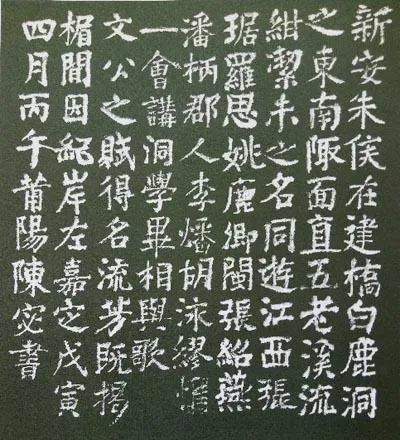 新安朱侯在建橋白鹿洞
之東南陬面直五老溪流
紺潔未之名同遊江西張
琚羅思姚鹿卿閩張紹燕
潘柄郡人李燔胡泳繆惟
一會講洞學畢相與歌
文公之賦得名流芳既揭
楣間因紀岸左嘉定戊寅
四月丙午莆陽陳宓書